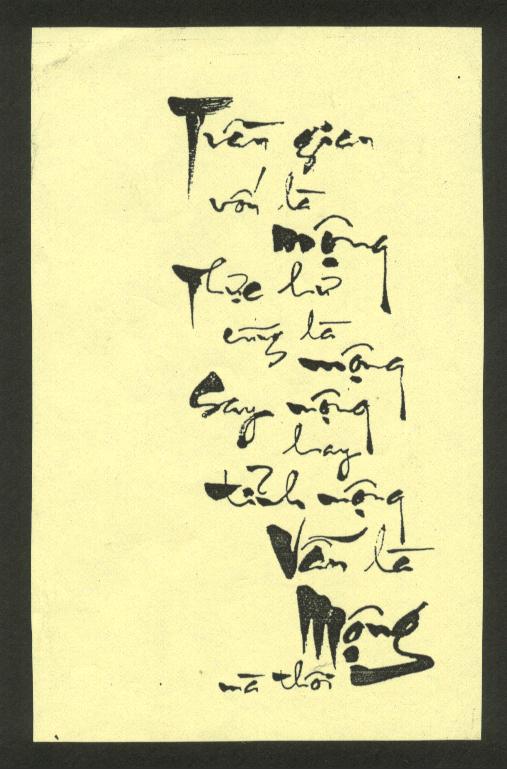 Trần gian
vốn là
mộng
Thực hư
cũng là
mộng
Say mộng
hay
tỉnh mộng
Vẫn là
Mộng
mà thôi